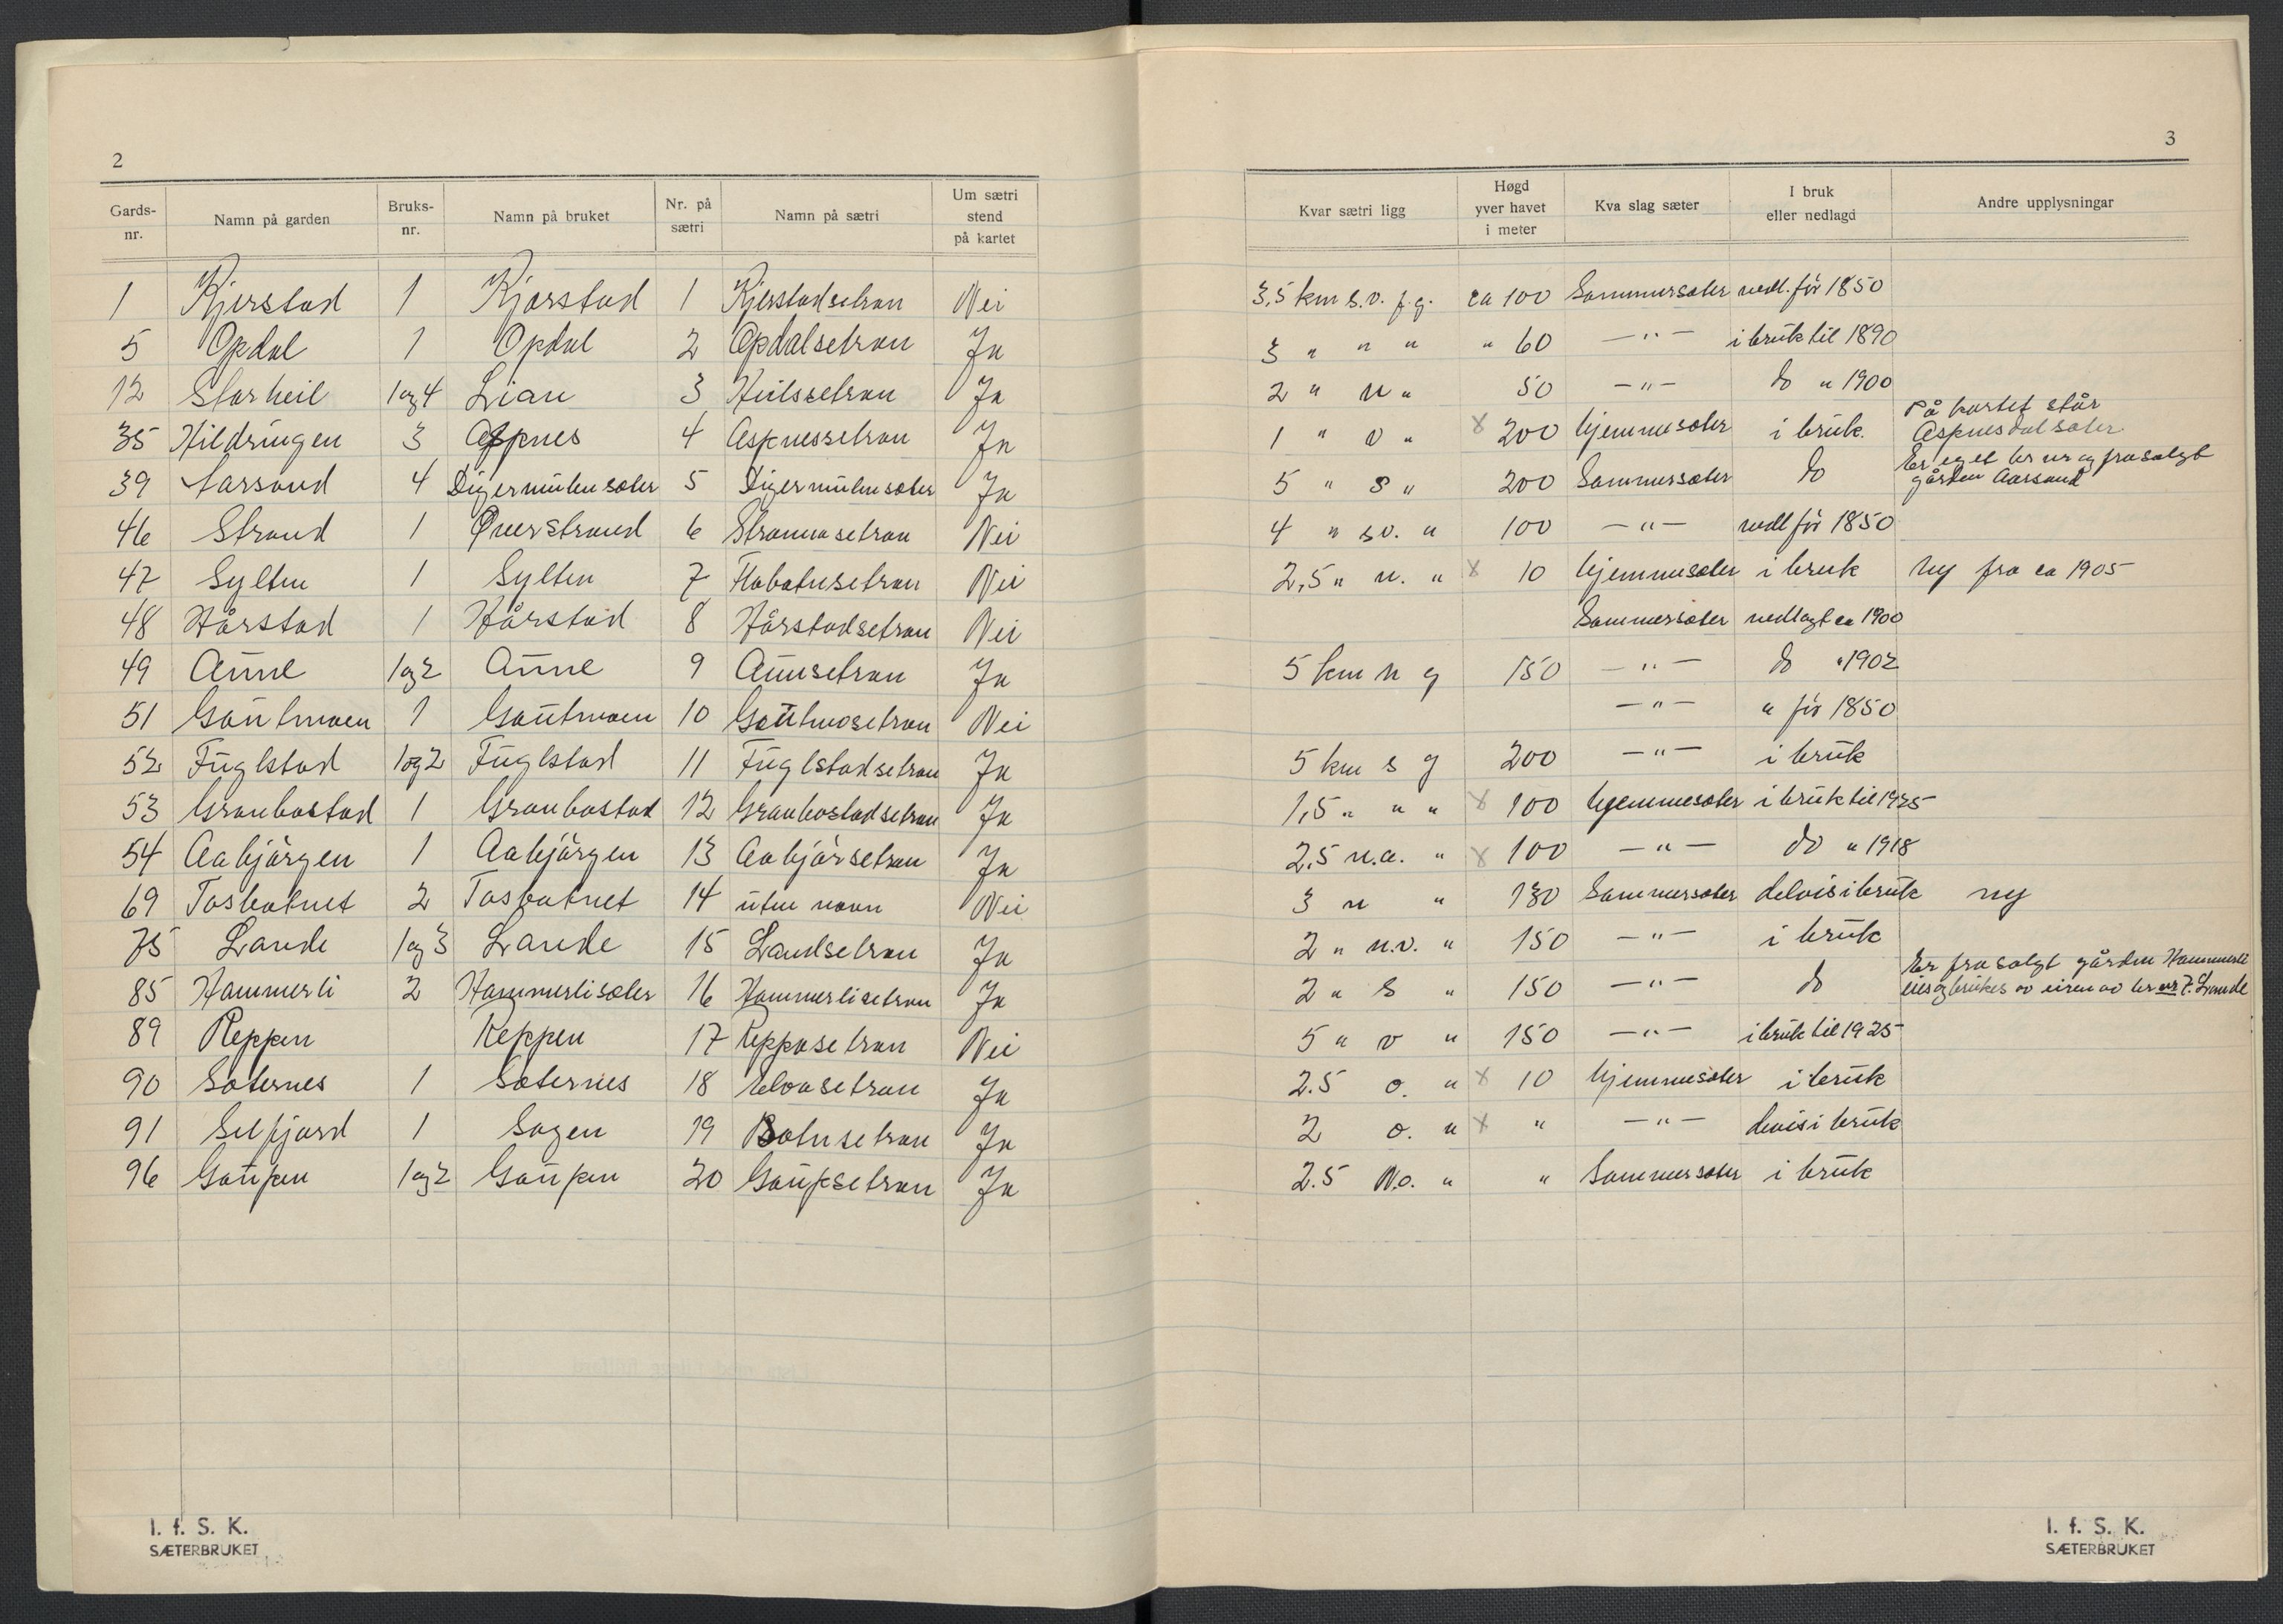 2
Gards-nr. Namn på garden Bruks-nr. Namn på bruket Nr. på sætri Namn på sætri Um sætri stend på kartet
1 Kjerstad 1 Kjærstad 1 Kjerstadsetran Nei
5 Opdal 1 Opdal 2 Opdalsetran Ja
12 Storheil 1og4 Lian 3 Heilssetran Ja
35 Hildringen 3 Aspnes 4 Aspnessetran Ja
39 Aarsand 4 Digermulensæter 5 Digermulensæter Ja
46 Strand 1 Øverstrand 6 Strannasetran Nei
47 Sylten 1 Sylten 7 Flabatnsetran Nei
48 Hårstad 1 Hårstad 8 Hårstadsetran Nei
49 Aune 1og2 Aune 9 Aunsetran Ja
51 Gautmoen 1 Gautmoen 10 Gautmosetran Nei
52 Fuglstad 1og2 Fuglstad 11 Fuglstadsetran Ja
53 Granbostad 1 Granbostad 12 Granbostadsetran Ja
54 Aabjørgen 1 Aabjørgen 13 Aabjørsetran Ja
69 Tosbotnet 2 Tosbotnet 14 uten navn Nei
75 Lande 1og3 Lande 15 Landsetran Ja
85 Hammerli 2 Hammerlisæter 16 Hammerlisetran Ja
89 Reppen Reppen 17 Reppasetran Nei
90 Sæternes 1 Sæternes 18 Elvasetran Ja
91 Selfjord 1 Sagen 19 Botnsetran Ja
96 Gaupen 1og2 Gaupen 20 Gaupsetran Ja
I. f. S. K.
SÆTERBRUKET
3
Kvar sætri ligg Høgd yver havet i meter Kva slag sæter I bruk eller nedlagd Andre upplysningar
3,5 km s.v. f.g. ca 100 Sommersæter nedl. før 1850
3 " " " " 60 —"— i bruk til 1890
2 " n " 50 —"— do " 1900
1 " v " x 200 hjemmesæter i bruk. På kartet står Aspnesdalsæter
5 " s " 200 Sommersæter do Er eget br nr og frasolgt gården Aarsand
4 " sv. " 100 —"— nedl før 1850
2,5 " n. " x 10 hjemmesæter i bruk Ny fra ca 1905
Sommersæter nedlagt ca 1900
5 km n g 150 —"— do " 1902
—"— " før 1850
5 km s g 200 —"— i bruk
1,5 " " " x 100 hjemmesæter i bruk til 1925
2,5 n.a. " x 100 —"— do " 1918
3 n " 130 Sommersæter delvis i bruk ny
2 " n.v. " 150 —"— i bruk
2 " s " 150 —"— do Er frasolgt gården Hammerli eies og brukes av eieren av br nr 7. Lande
5 " v " 150 —"— i bruk til 1925
2.5 o. " x 10 hjemmesæter i bruk
2 o. " x " —"— delvis i bruk
2.5 N.o. " " Sommersæter i bruk
I. f. S. K.
SÆTERBRUKET